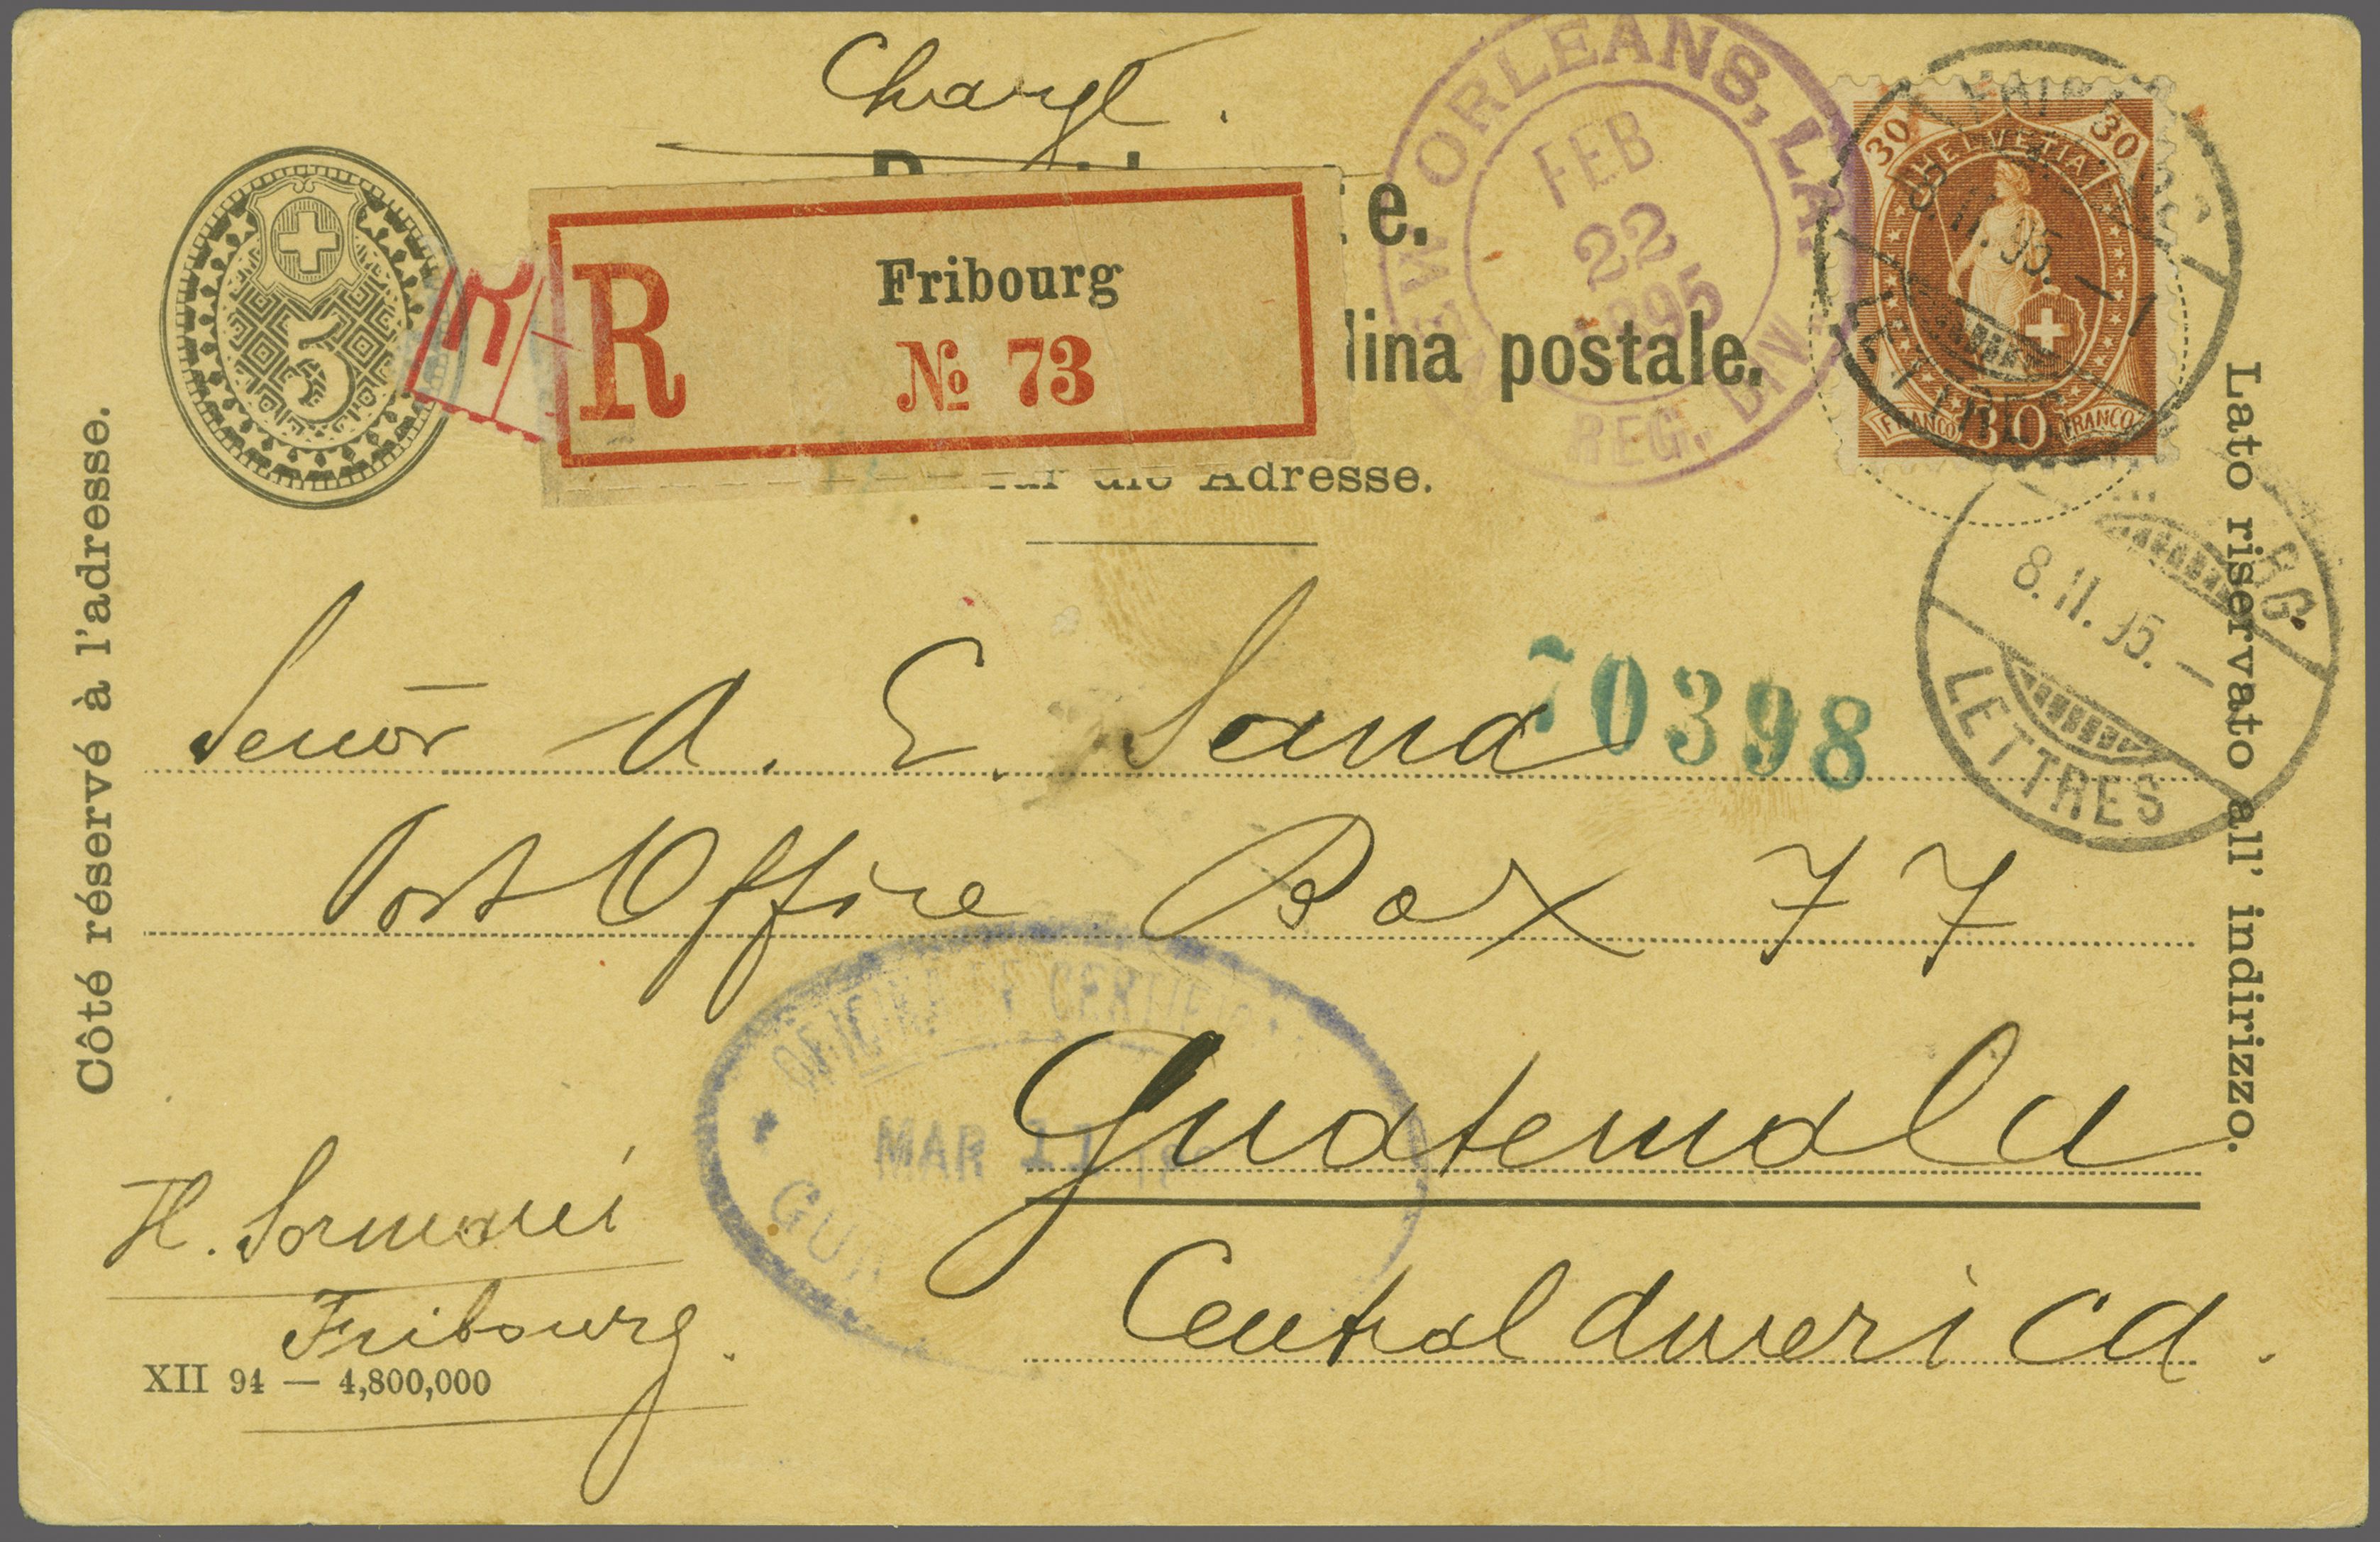 Chargé.
NEW ORLEANS, LA.
FEB
22
1895
REG. DIV.
30 30
HELVETIA
FRANCO 30 FRANCO
8.II.95.
LETTRES
5
R
R
Fribourg
№ 73
e.
lina postale.
für die Adresse.
Côté réservé à l'adresse.
Lato riservato all' indirizzo.
BG.
8.II.95.
LETTRES
70398
Señor A. E. Sana
Post Office Box 77
OFICINA DE CERTIFI
MAR 11
GUA
Guatemala
Central America.
H. Sormani
Fribourg.
XII 94 — 4,800,000